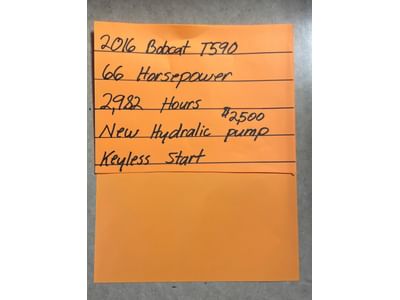 2016 Bobcat T590
66 Horsepower
2,982 Hours
$2,500
New Hydralic pump
Keyless Start